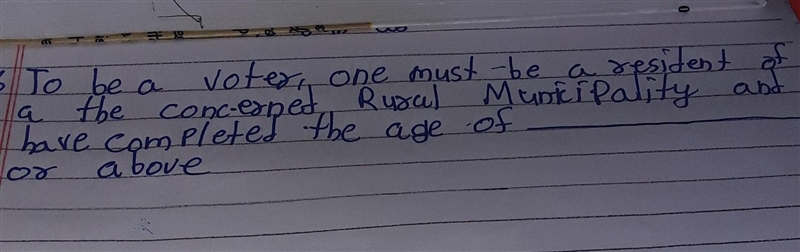 To be a voter, one must be a resident of
a the concerned Rural Municipality and
have completed the age of
or above